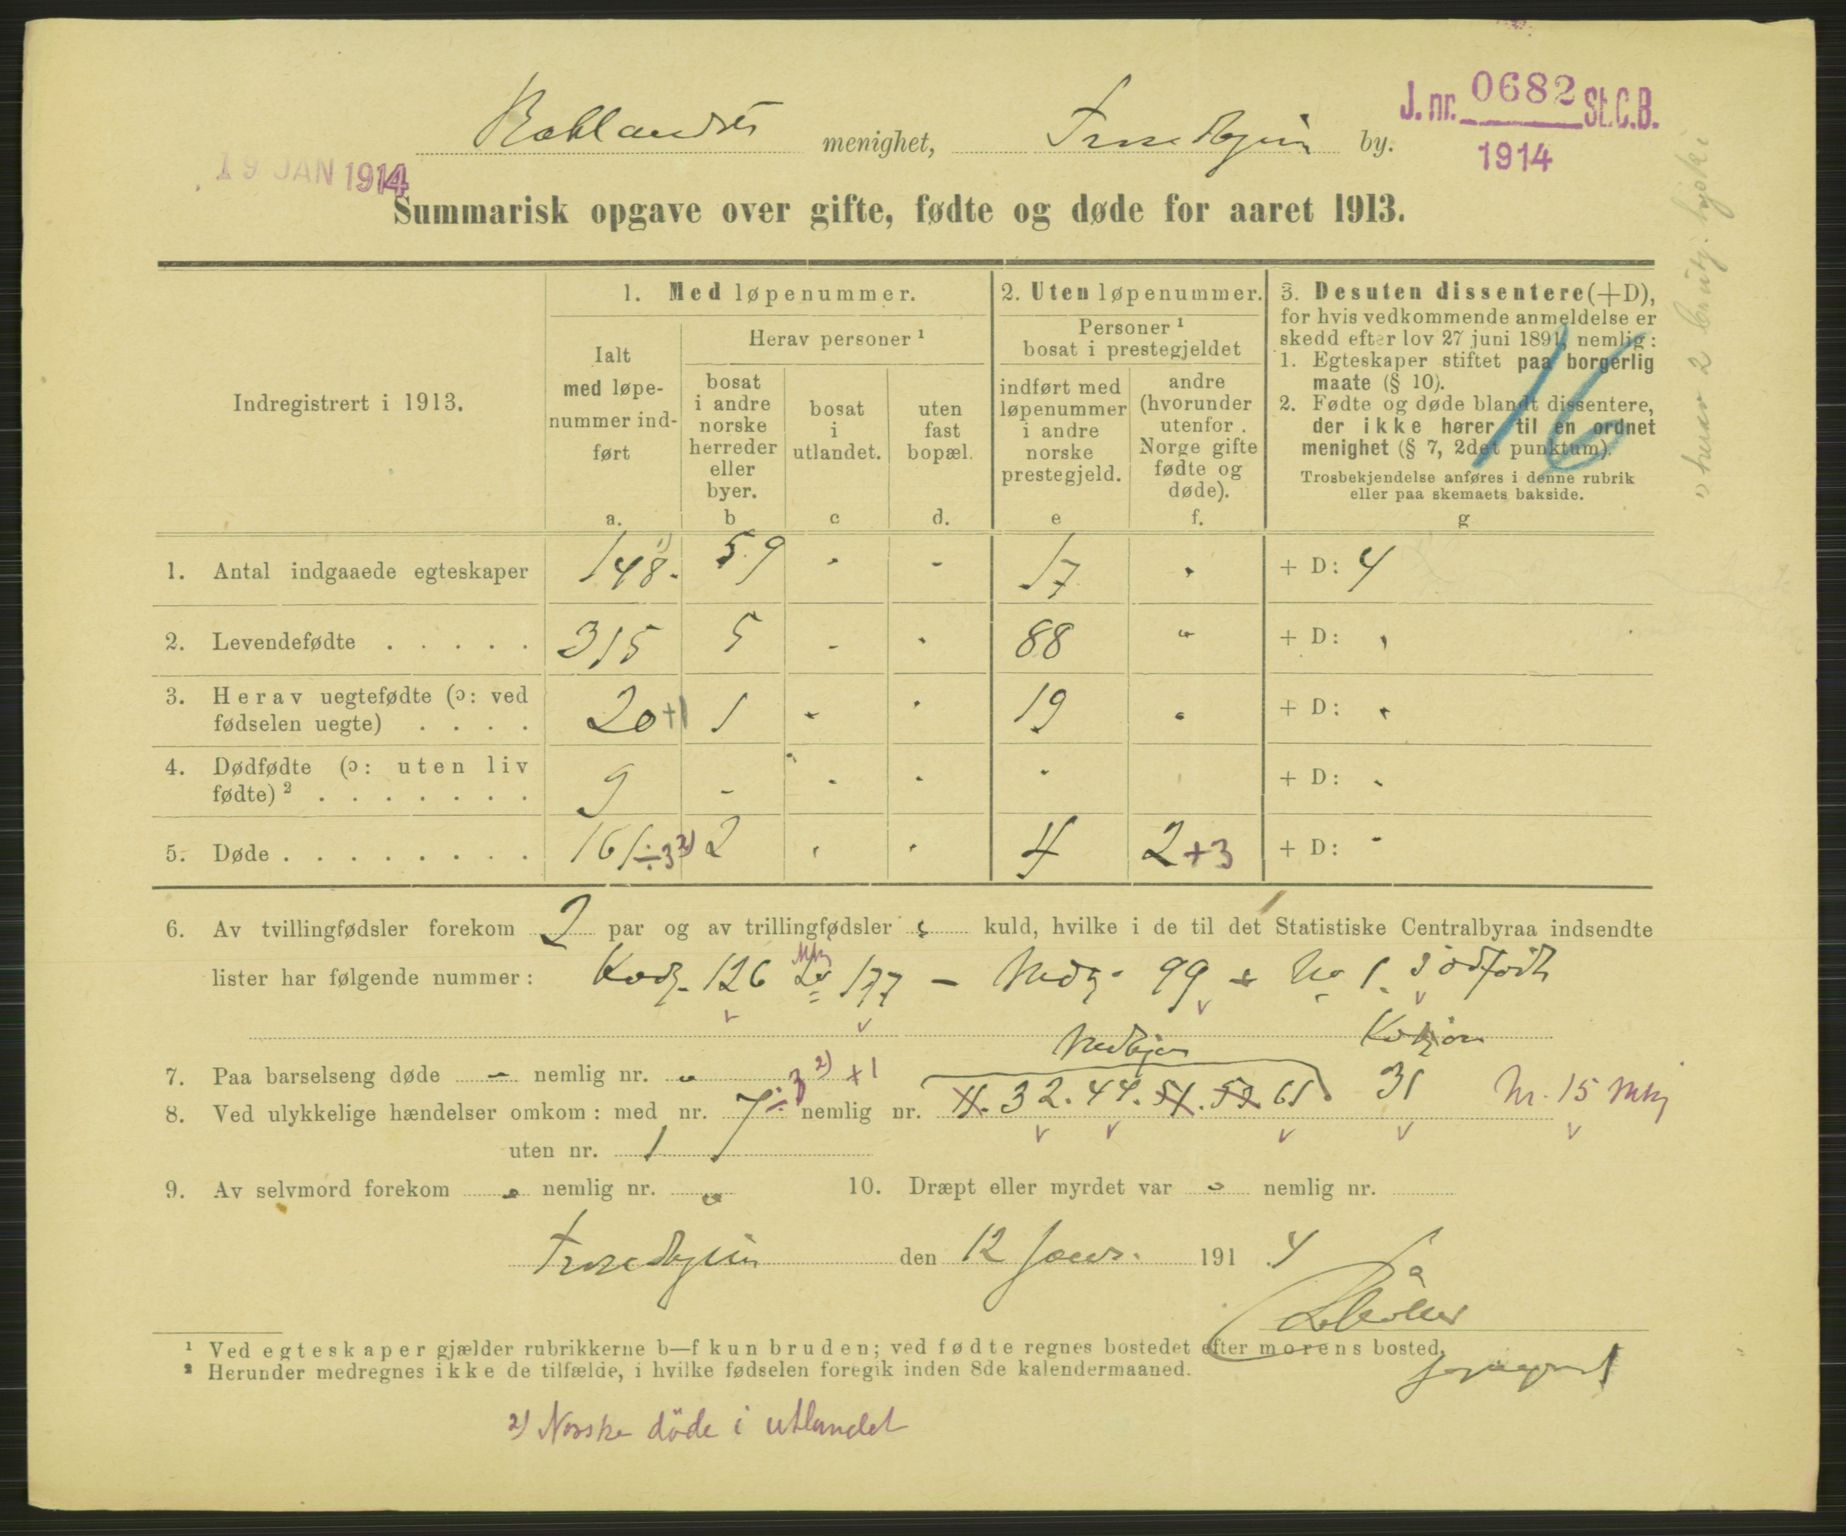 J. nr. 0682 St.C.B.
1914
19 JAN 1914
Baklandets menighet, Trondhjem by.
Summarisk opgave over gifte, fødte og døde for aaret 1913.
Indregistrert i 1913.
1. Med løpenummer.
Ialt
med løpe-
nummer ind-
ført
a.
Herav personer ¹
bosat
i andre
norske
herreder
eller
byer.
b
bosat
i
utlandet.
c
uten
fast
bopæl.
d.
2. Uten løpenummer.
Personer ¹
bosat i prestegjeldet
indført med
løpenummer
i andre
norske
prestegjeld.
e
andre
(hvorunder
utenfor
Norge gifte
fødte og
døde).
f.
3. Desuten dissentere (+D),
for hvis vedkommende anmeldelse er
skedd efter lov 27 juni 1891, nemlig:
1. Egteskaper stiftet paa borgerlig
maate (§ 10).
2. Fødte og døde blandt dissentere,
der ikke hører til en ordnet
menighet (§ 7, 2det punktum).
Trosbekjendelse anføres i denne rubrik
eller paa skemaets bakside.
g
16
1. Antal indgaaede egteskaper 148 ¹⁾ 59 - - 17 - + D: 4
2. Levendefødte . . . . . 315 5 - - 88 - + D: -
3. Herav uegtefødte (ɔ: ved
fødselen uegte) . . . . 20+1 1 - - 19 - + D: -
4. Dødfødte (ɔ: uten liv
fødte) ² . . . . . . . 9 - - - - + D: -
5. Døde . . . . . . . . 161÷3 ²⁾ 2 - - 4 2+3 + D: -
6. Av tvillingfødsler forekom 2 par og av trillingfødsler - kuld, hvilke i de til det Statistiske Centralbyraa indsendte
lister har følgende nummer: 126 177 - 99 + No 1 dödfödt
7. Paa barselseng døde - nemlig nr. -
8. Ved ulykkelige hændelser omkom: med nr. 7÷3 ²⁾ +1 nemlig nr. 4. 32. 44. 51. 53. 61 31 Nr. 15 Mkj
uten nr. 1
9. Av selvmord forekom - nemlig nr. - 10. Dræpt eller myrdet var - nemlig nr.
Trondhjem den 12 Janr. 1914
¹ Ved egteskaper gjælder rubrikkerne b—f kun bruden; ved fødte regnes bostedet efter morens bosted.
² Herunder medregnes ikke de tilfælde, i hvilke fødselen foregik inden 8de kalendermaaned.
2) Norske döde i utlandet